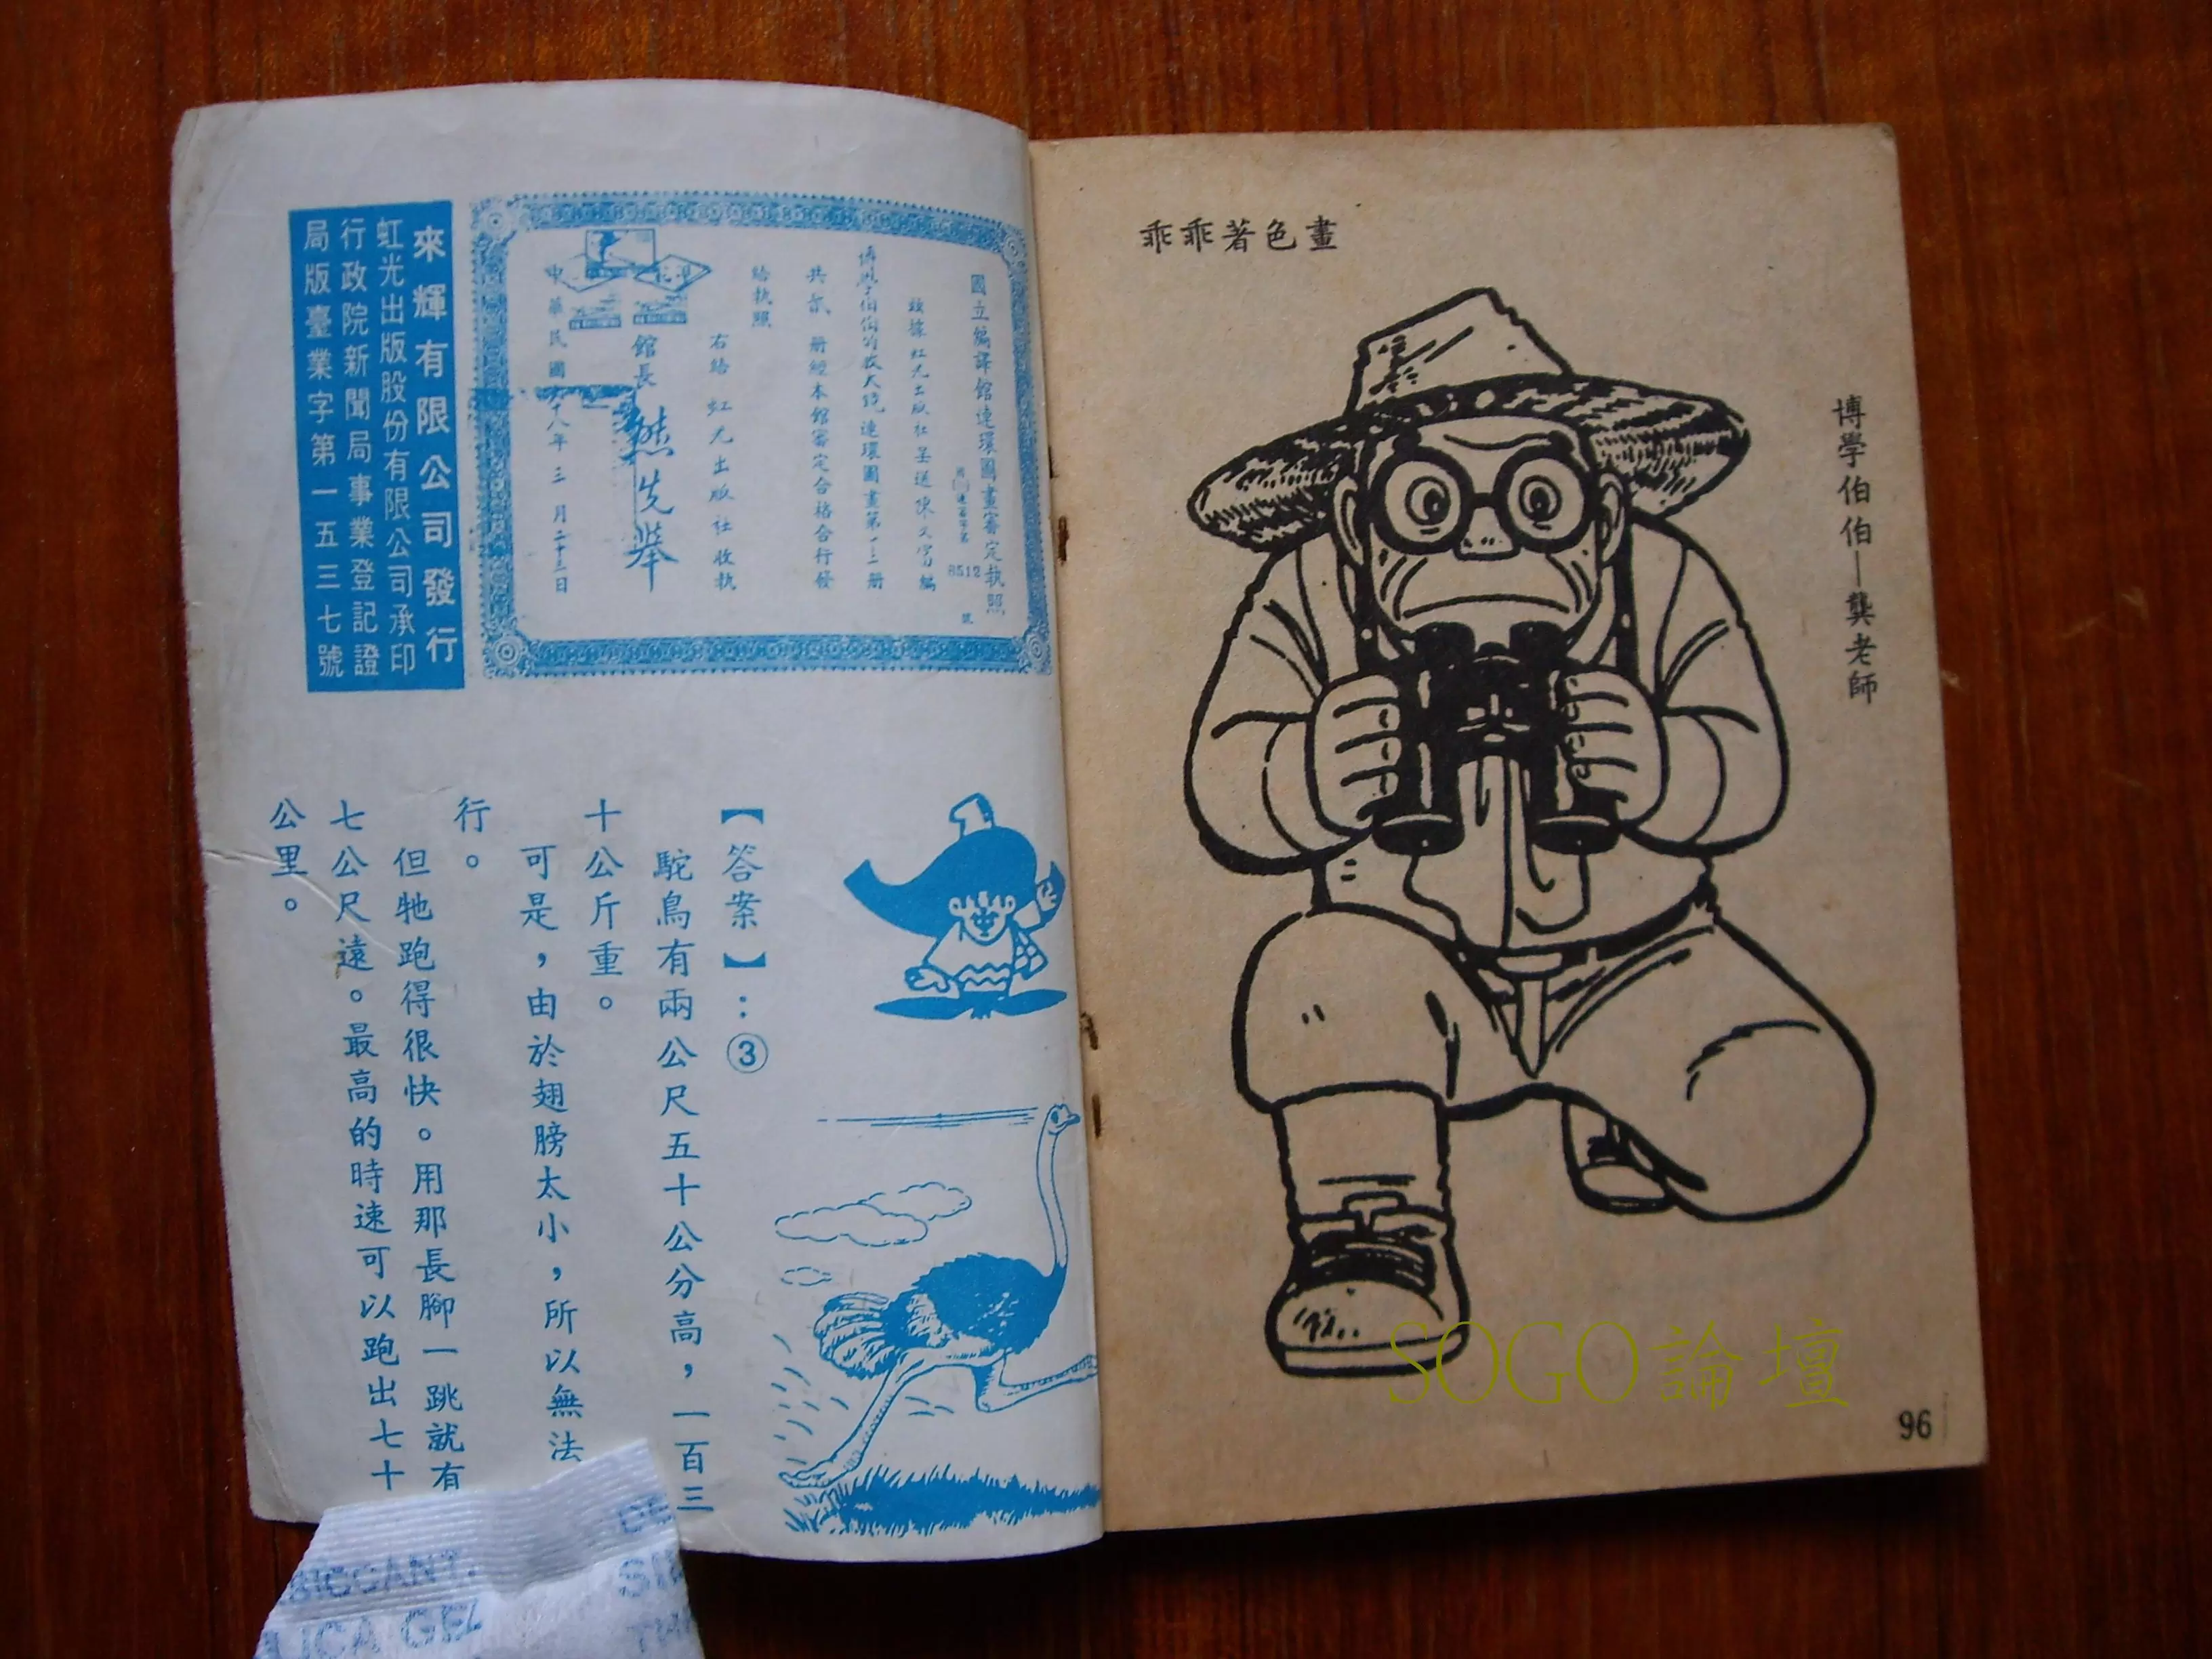 乖乖著色畫
博學伯伯—龔老師
96
SOGO論壇
國立編譯館連環圖畫審定執照
8512
號
茲據虹光出版社呈送陳文富編
共貳冊經本館審定合格合行發
給執照
右給 虹光出版社收執
館長 熊先舉
來輝有限公司發行
虹光出版股份有限公司承印
行政院新聞局事業登記證
局版臺業字第一五三七號
【答案】:③
駝鳥有兩公尺五十公分高,一百三
十公斤重。
可是,由於翅膀太小,所以無法
行。
但牠跑得很快。用那長腳一跳就有
七公尺遠。最高的時速可以跑出七十
公里。
SICCANT
ICA GEL